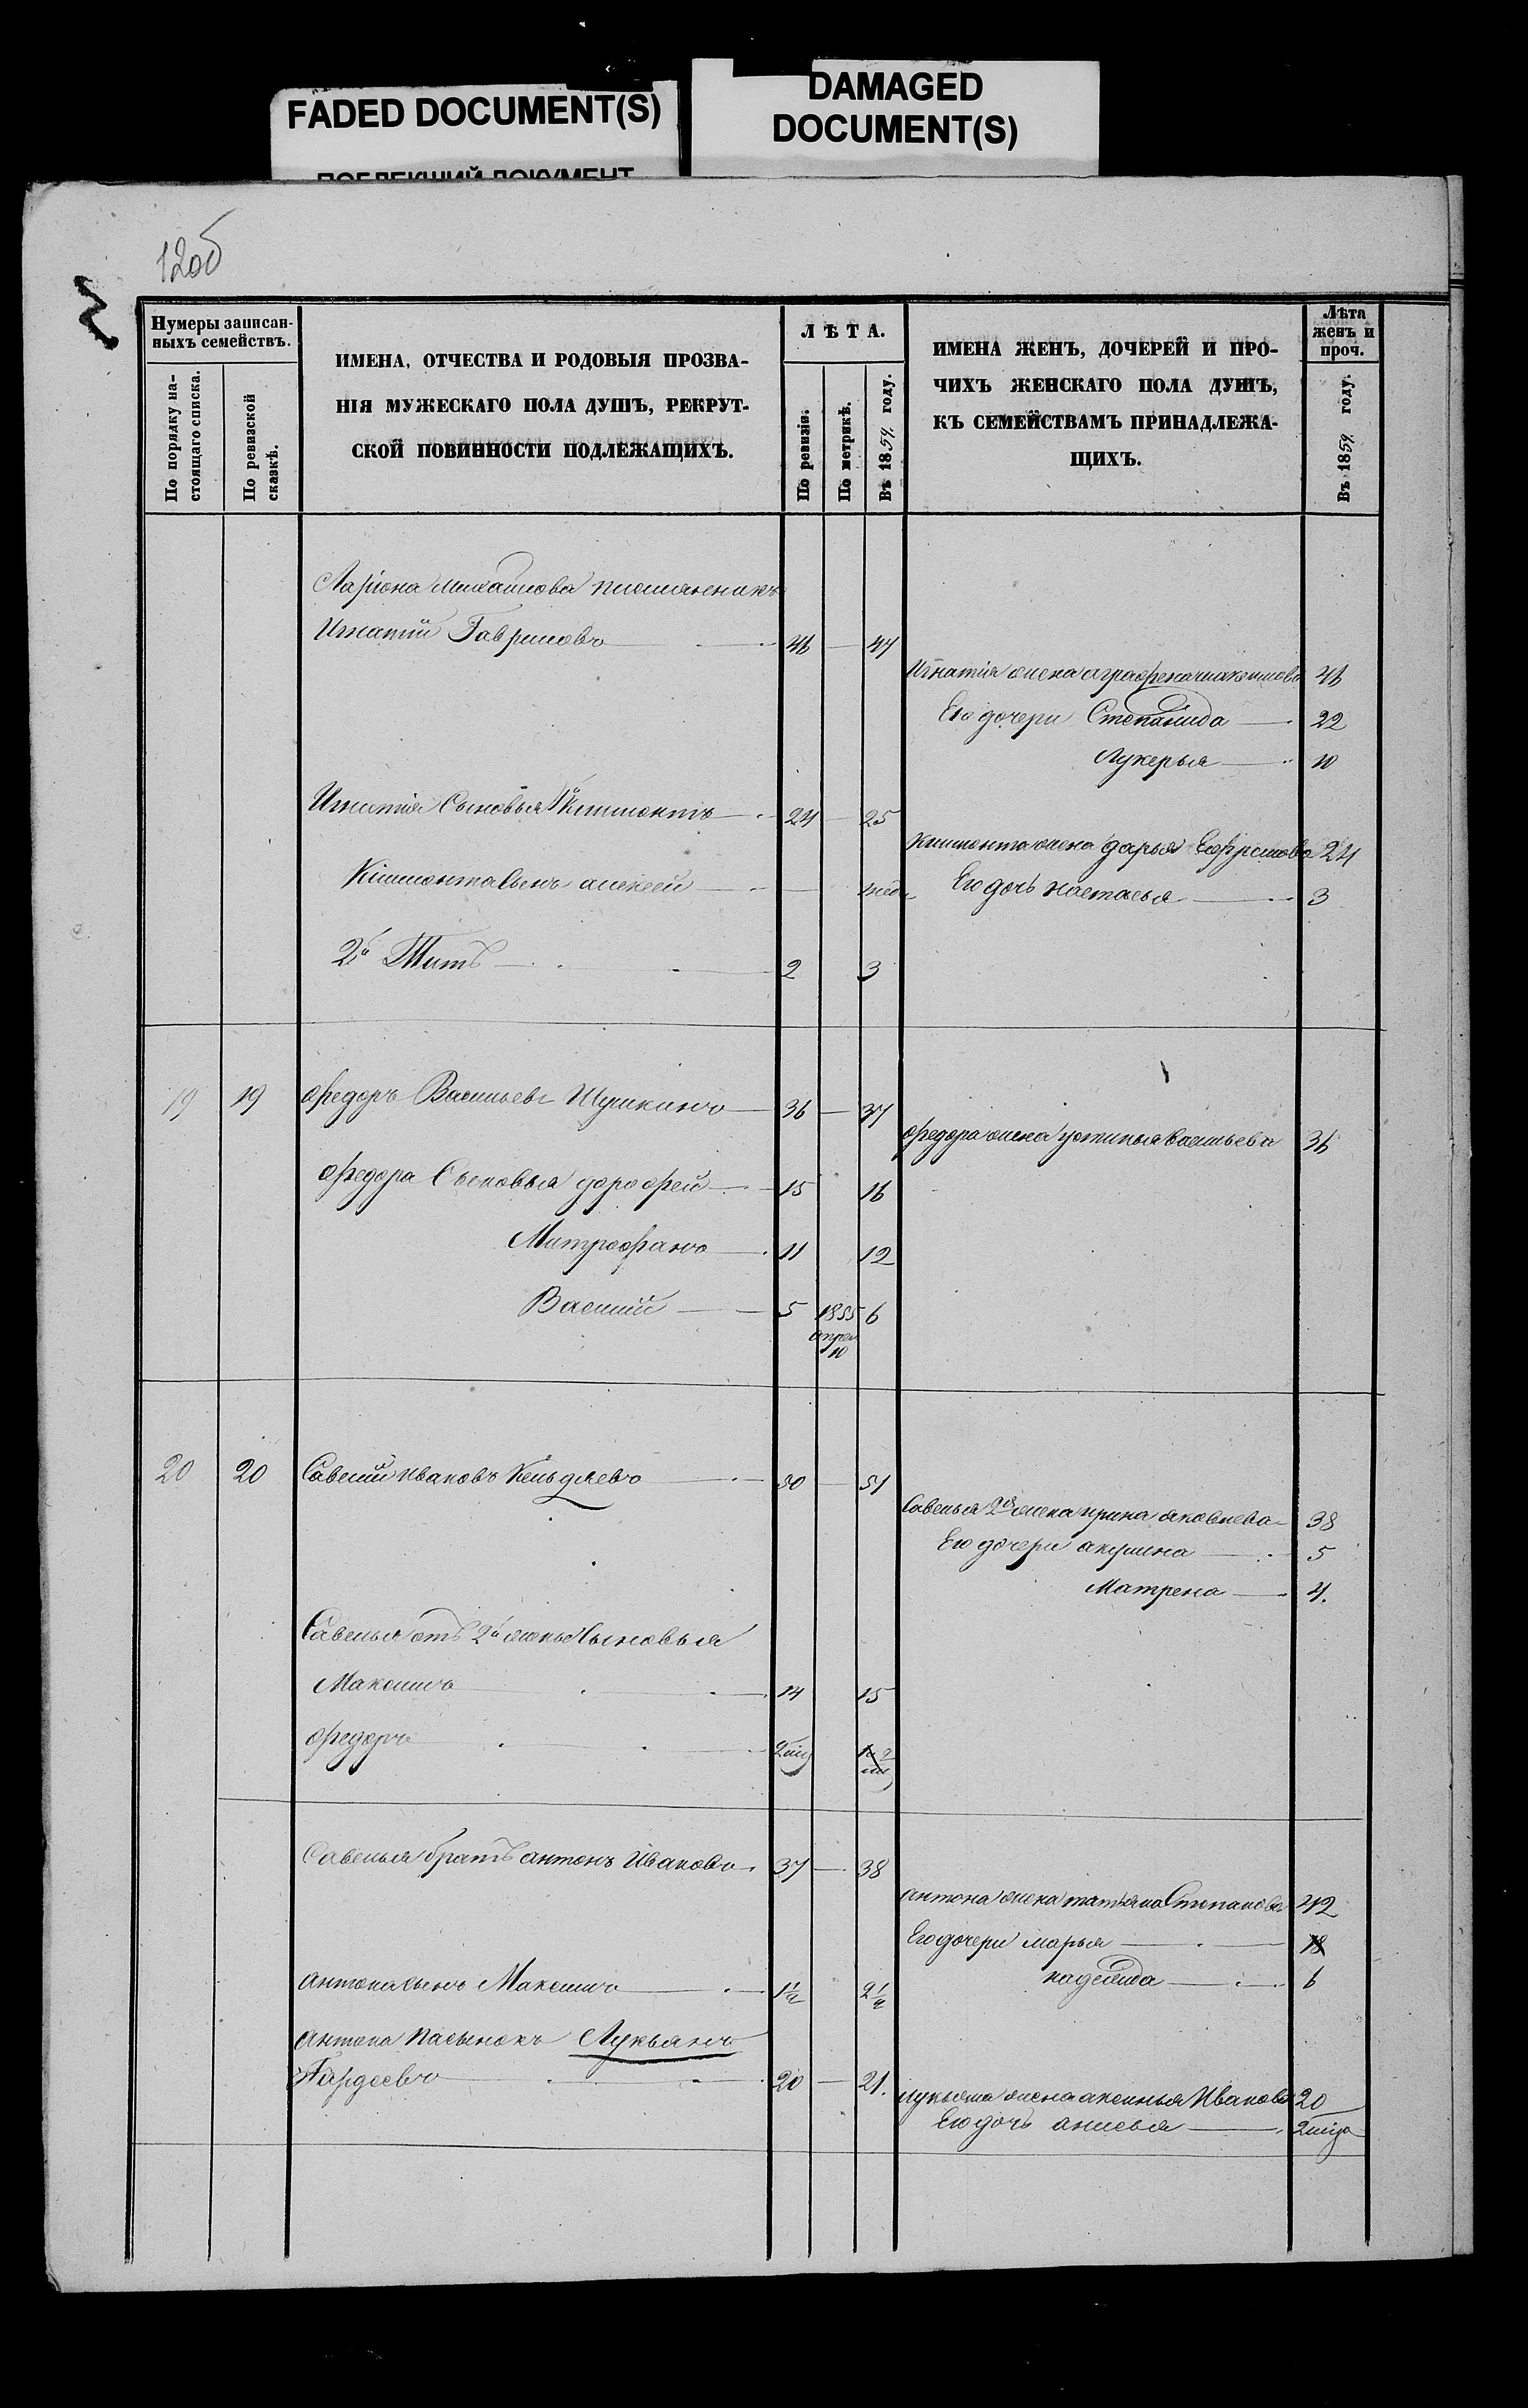 FADED DOCUMENT(S)
DAMAGED
DOCUMENT(S)
ПОБЛЕКШИЙ ДОКУМЕНТ
12об
Нумеры записан-
ныхъ семействъ.
По порядку на-
стоящаго списка.
По ревизской
сказкѣ.
ИМЕНА, ОТЧЕСТВА И РОДОВЫЯ ПРОЗВА-
НІЯ МУЖЕСКАГО ПОЛА ДУШЪ, РЕКРУТ-
СКОЙ ПОВИННОСТИ ПОДЛЕЖАЩИХЪ.
ЛѢТА.
По ревизіи.
По метрикѣ.
Въ 1859. году.
ИМЕНА ЖЕНЪ, ДОЧЕРЕЙ И ПРО-
ЧИХЪ ЖЕНСКАГО ПОЛА ДУШЪ,
КЪ СЕМЕЙСТВАМЪ ПРИНАДЛЕЖА-
ЩИХЪ.
Лѣта
женъ и
проч.
Въ 1859. году.
Ларіона Михайлова племяненикъ
Игнатій Гавриловъ 46 47
Игнатія жена аграфена 46
Его дочери Степанида 22
Лукерья 10
Игнатія Сыновья 1й Климонтъ 24 25
Климонта жена дарья Ефремова 24
Климонта сынъ алексей
Его дочь настасья 3
2й Титъ 2 3
19 19 Федоръ Васильевъ Шушкинъ 36 37
Федора жена устинья васильева 36
Федора Сыновья дорофей 15 16
Митрофанъ 11 12
Василий 5 1855 6
апрел
10
20 20 Савелий Ивановъ Кельдяевъ 50 51
Савелья 2я жена ирина яковлева 38
Его дочери акулина 5
Матрена 4.
Савелья отъ 2й жены Сыновья
Максимъ 14 15
Федоръ
Савелья братъ антонъ Ивановъ 37 38
антона жена татьяна Степанова 42
Его дочери марья 18
надежда 6
антона сынъ Максимъ 1 1/2 2 1/2
антона пасынокъ Лукьянъ
Гардеевъ 20 21.
лукьяна жена аксинья Иванова 20
Его дочь анисья